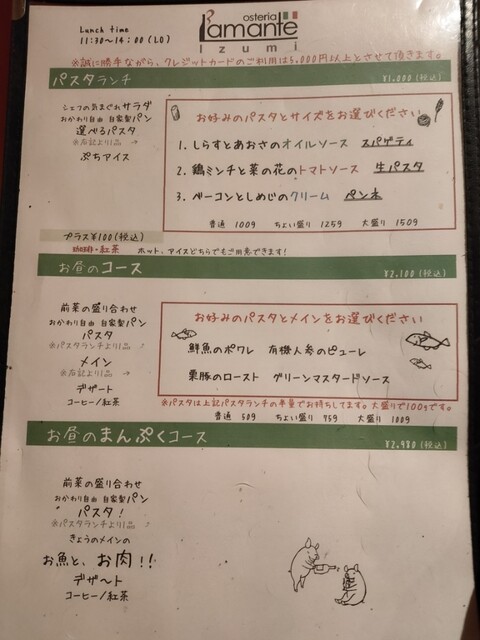 Lunch time
11:30〜14:00 (LO)
osteria
l'amante
Izumi
※誠に勝手ながら、クレジットカードのご利用は5,000円以上とさせて頂きます。
パスタランチ ¥1,000(税込)
シェフのきまぐれサラダ
おかわり自由 自家製パン
選べるパスタ
※右記より1品
ぷちアイス
お好みのパスタとサイズをお選びください
1. しらすとあおさのオイルソース スパゲティ
2. 鶏ミンチと菜の花のトマトソース 生パスタ
3. ベーコンとしめじのクリーム ペンネ
普通 100g ちょい盛り 125g 大盛り 150g
プラス¥100(税込)
珈琲・紅茶 ホット、アイスどちらでもご用意できます!
お昼のコース ¥2,100(税込)
前菜の盛り合わせ
おかわり自由 自家製パン
パスタ
※パスタランチより1品
メイン
※右記より1品
デザート
コーヒー/紅茶
お好みのパスタとメインをお選びください
鮮魚のポワレ 有機人参のピューレ
栗豚のロースト グリーンマスタードソース
※パスタは上記パスタランチの半量でお持ちしてます。大盛りで100gです。
普通 50g ちょい盛り 75g 大盛り 100g
お昼のまんぷくコース ¥2,980(税込)
前菜の盛り合わせ
おかわり自由 自家製パン
パスタ!
※パスタランチより1品
きょうのメインの
お魚と、お肉!!
デザート
コーヒー/紅茶